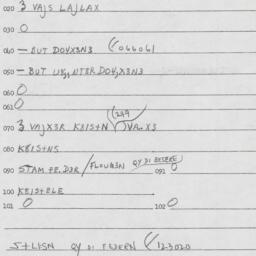 020 3 VAJS LAJLAX
030 0
040 – BUT DOVX3N3 (066061
050 – BUT UN,NTER DOV,X3N3
060 0
061 0
(249
070 3 VAJX3R KEISTN VA.X3
080 KEISTNS
090 STAM FE.D3R / FLOWEN QY DI BESERE) 091 0
100 KEISTELE
101 0 102 0
STLISN QY DI (123020